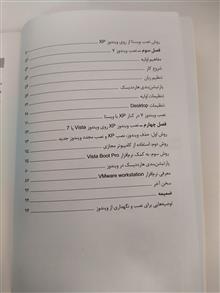 روش نصب ویستا از روی ویندوز XP
فصل سوم ــ نصب ویندوز ۷
مفاهیم اولیه
شروع کار
تنظیم زبان
پارتیشن‌بندی هارددیسک
تنظیمات اولیه
تنظیمات Desktop
نصب ویندوز ۷ در کنار XP یا ویستا
فصل چهارم ــ نصب ویندوز XP روی ویندوز Vista یا 7
روش اول: حذف ویندوز، نصب XP و نصب مجدد ویندوز جدید
روش دوم: استفاده از کامپیوتر مجازی
روش سوم: به کمک نرم‌افزار Vista Boot Pro
پارتیشن‌بندی هارددیسک در ویندوز
معرفی نرم‌افزار VMware workstation
سخن آخر
ضمیمه
توصیه‌هایی برای نصب و نگهداری از ویندوز